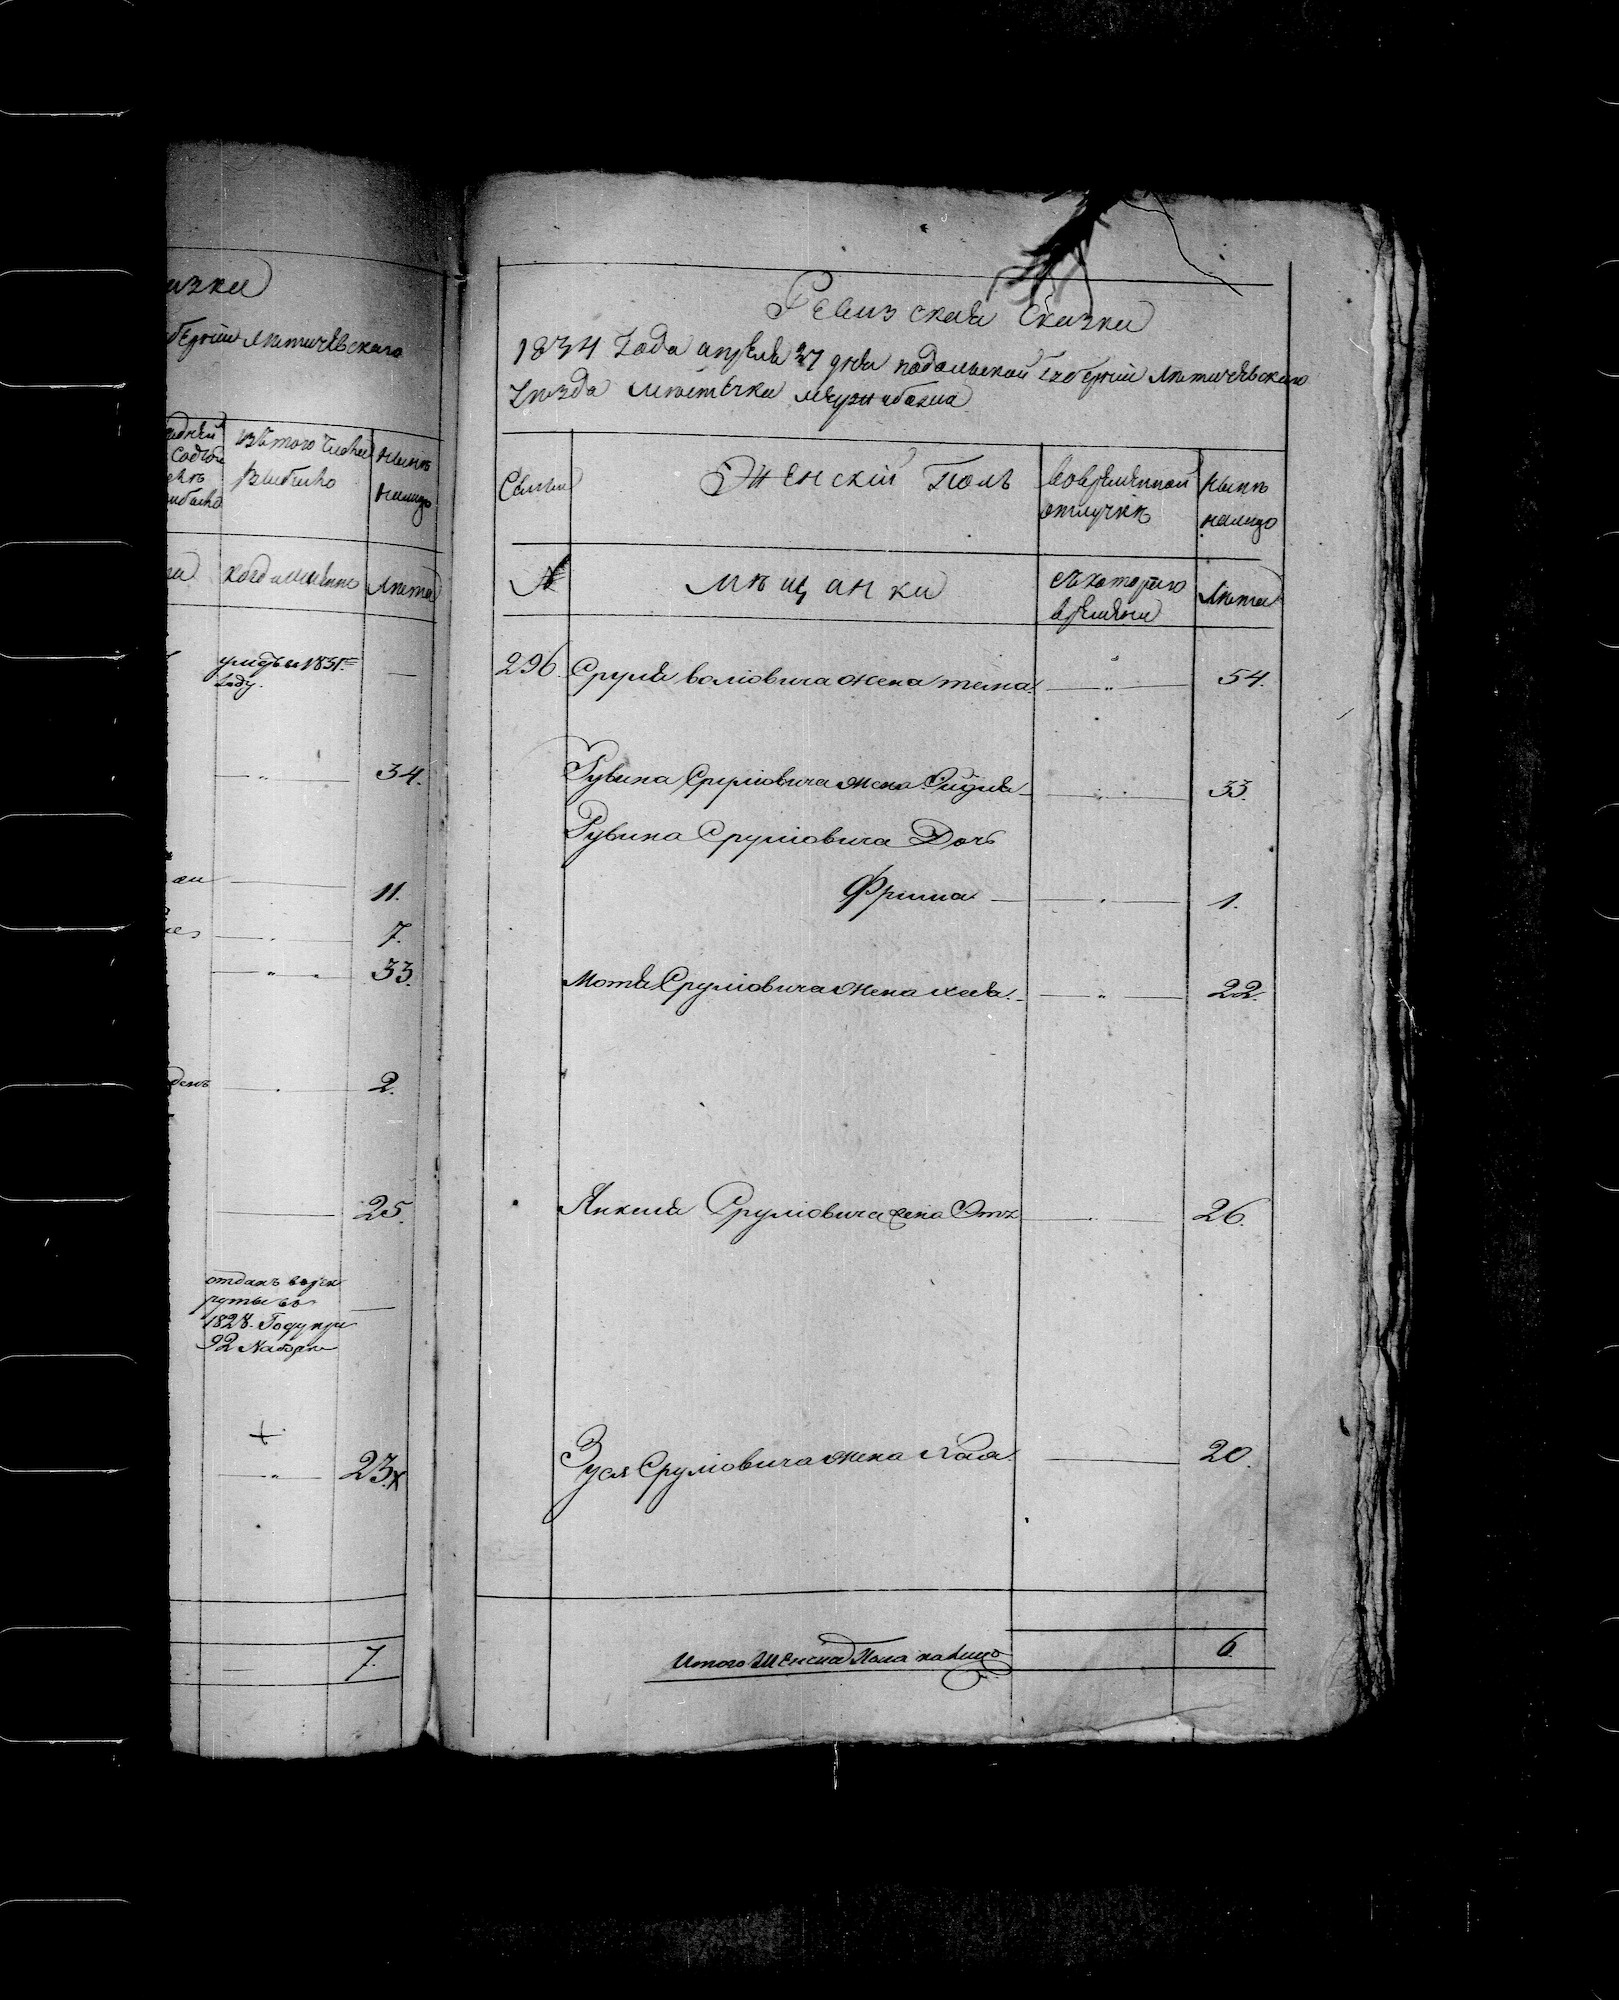 азки
берніи Лѣтичевскаго
изъ того числа
выбыло
ныне
налицо
когда именно
Лѣта
умеръ въ 1831=
году.
34.
11.
7.
33.
2.
25.
отданъ врек
руты во
1828. Году при
92 Наборѣ
23.
7.
Ревизская Сказка
1834 Года апреля 27 дня подольской Губерніи Лѣтичевскаго
Уезда Мѣстечка Межибожа
Семьи
Женскій Полъ
вовременной
отлучкѣ
ныне
налицо
№
Мѣщанки
съ котораго
времени
Лѣта
296. Сруля волковича жена 54.
Рувина Срулiовича жена 33.
Рувина Срулiовича Дочь
Фрима 1.
Мотя Срулiовича жена хая. 22.
Янкеля Срулiовича жена 26.
Зуся Срулiовича жена Хая. 20.
Итого Женска Пола налицо 6